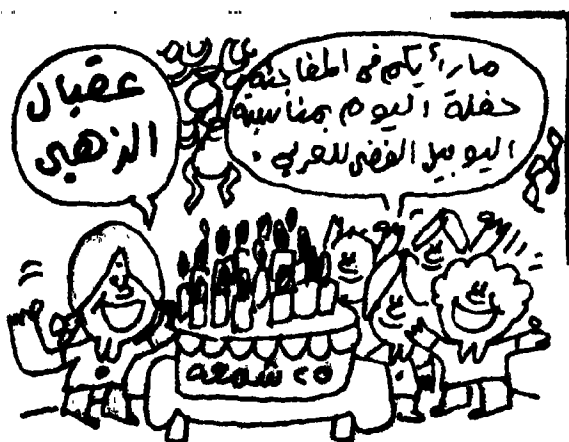 ما رأيكم في المفاجئة
حفلة اليوم بمناسبة
اليوبيل الفضي للعربي.
عقبال
الذهبي
٢٥ شمعة